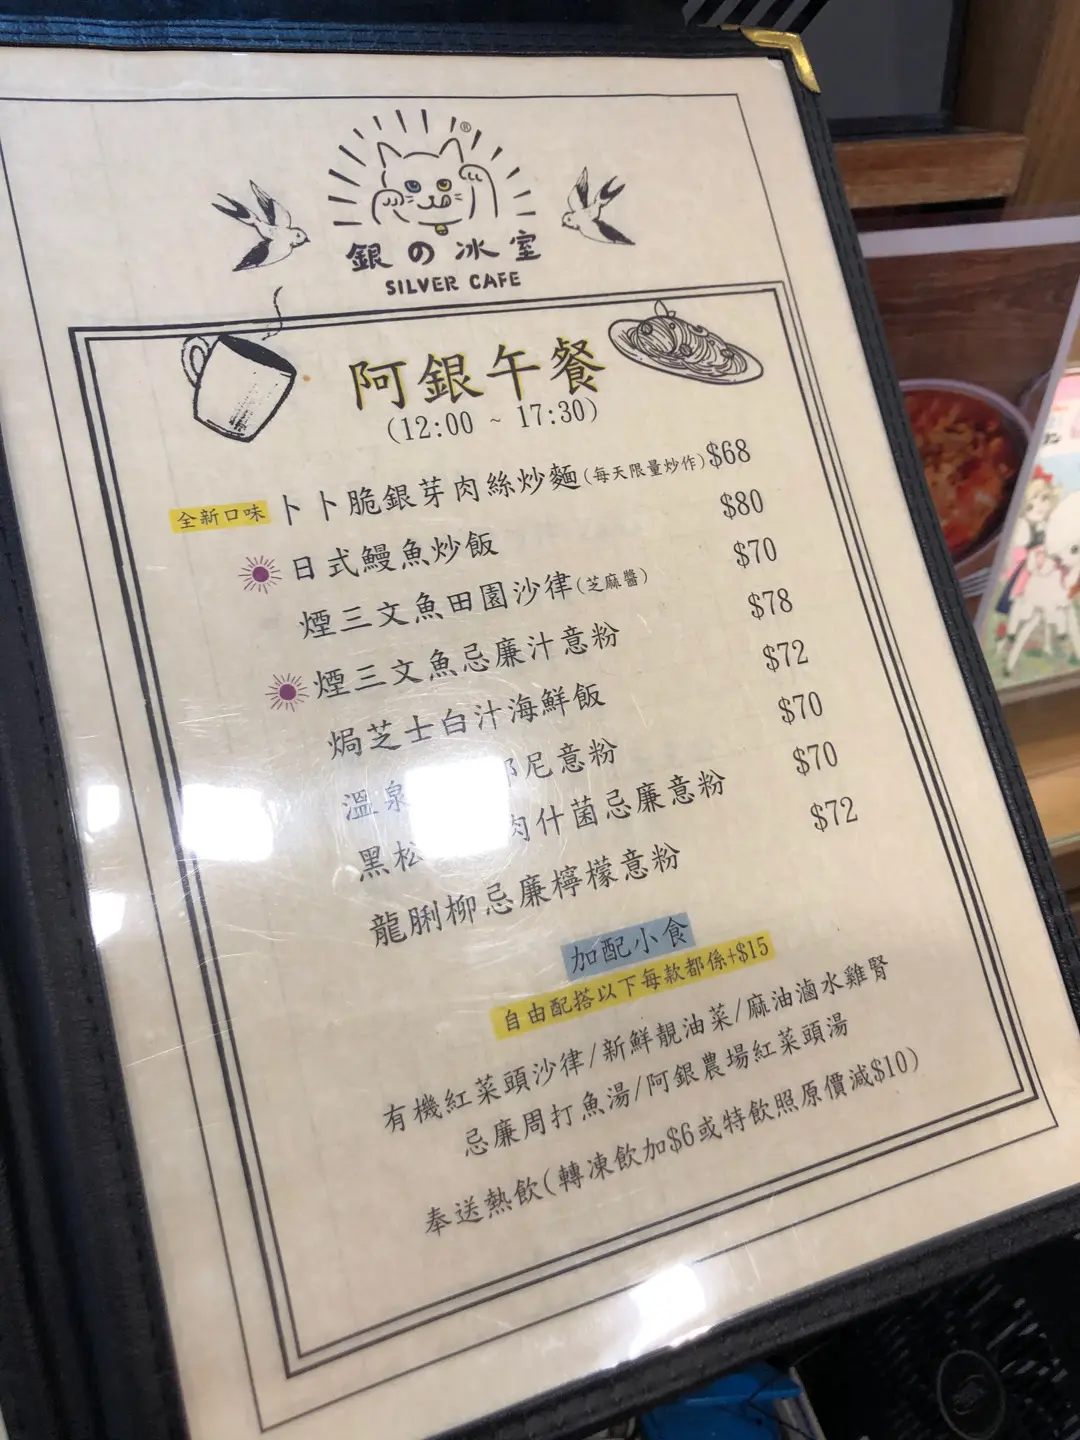 ®
銀の冰室
SILVER CAFE
阿銀午餐
(12:00 ~ 17:30)
全新口味 卜卜脆銀芽肉絲炒麵(每天限量炒作) $68
日式鰻魚炒飯 $80
煙三文魚田園沙律(芝麻醬) $70
煙三文魚忌廉汁意粉 $78
焗芝士白汁海鮮飯 $72
溫泉 尼意粉 $70
黑松 肉什菌忌廉意粉 $70
龍脷柳忌廉檸檬意粉 $72
加配小食
自由配搭以下每款都係+$15
有機紅菜頭沙律/新鮮靚油菜/麻油滷水雞腎
忌廉周打魚湯/阿銀農場紅菜頭湯
奉送熱飲(轉凍飲加$6或特飲照原價減$10)